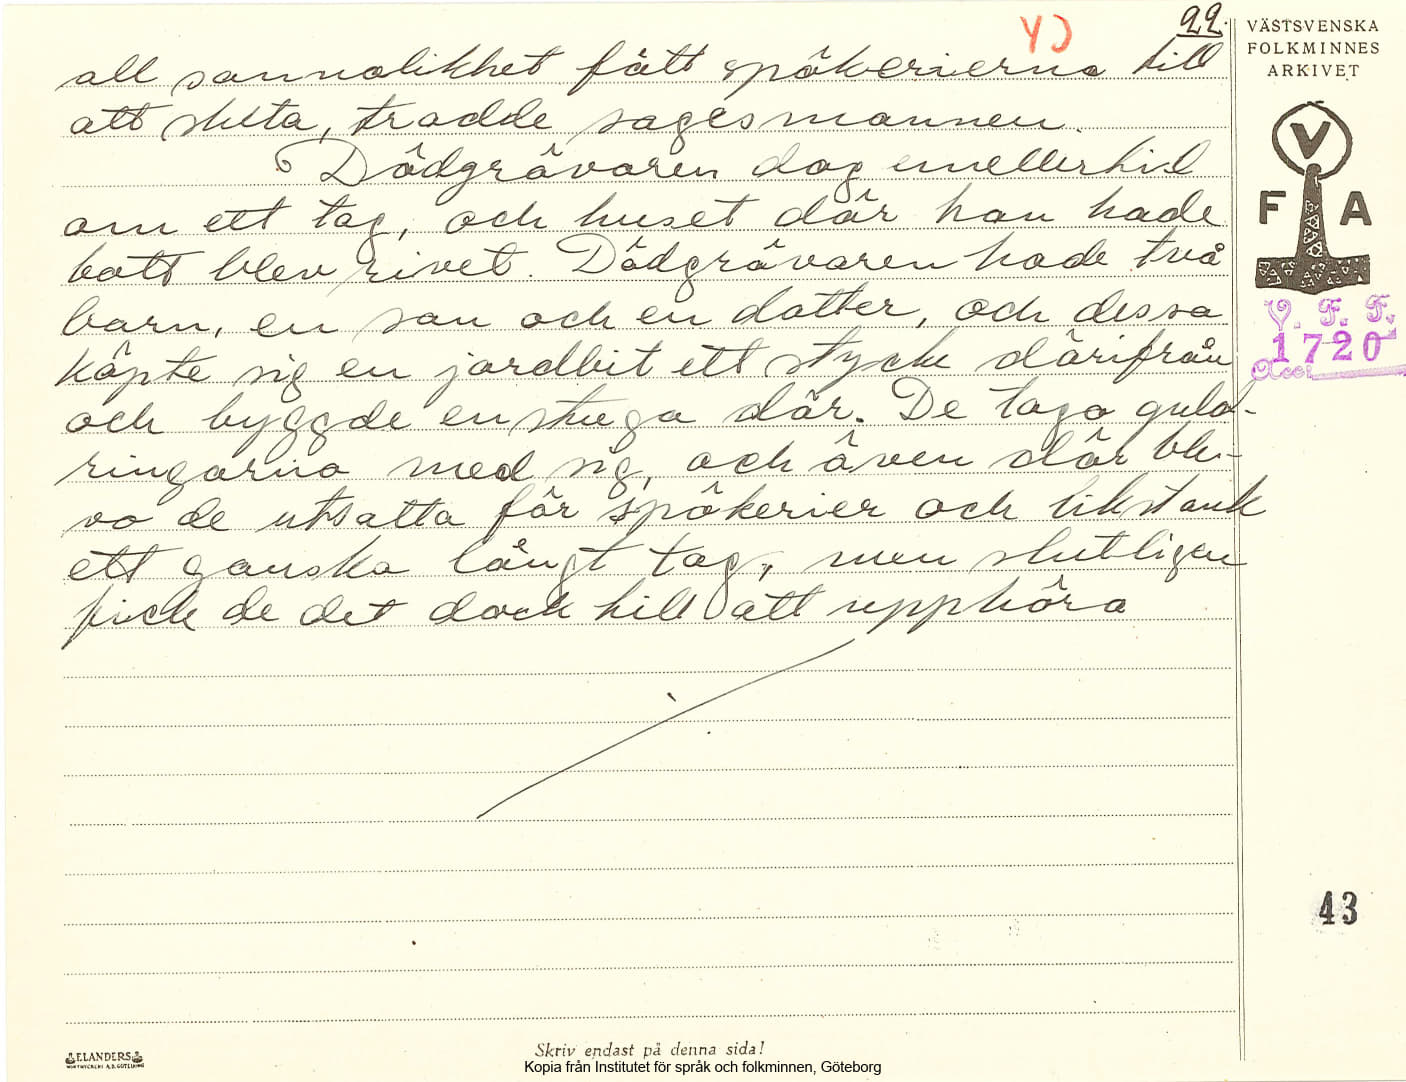 22.
VÄSTSVENSKA
FOLKMINNES
ARKIVET
V
F A
V. F. F.
1720
Acc:
all sannolikhet fått spökerierna till
att sluta, trodde sagesmannen.
Dödgrävaren dog emellertid
om ett tag, och huset där han hade
bott blev rivet. Dödgrävaren hade två
barn, en son och en dotter, och dessa
köpte sig en jordbit ett stycke därifrån
och byggde en stuga där. De togo guld-
ringarna med sig, och även där ble-
vo de utsatta för spökerier och likstank
ett ganska långt tag, men slutligen
fick de det dock till att upphöra
43
ELANDERS
Skriv endast på denna sida!
Kopia från Institutet för språk och folkminnen, Göteborg